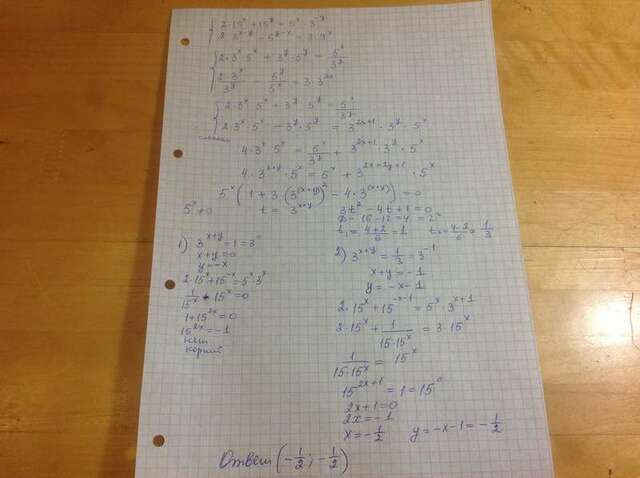 2·15^x + 15^y = 5^x · 3^-y
2·3^x-y - 5^y-x = 3·9^x
2·3^x·5^x + 3^y·5^y = 5^x/3^y
2·3^x/3^y - 5^y/5^x = 3·3^2x
2·3^x·5^x + 3^y·5^y = 5^x/3^y
2·3^x·5^x - 3^y·5^y = 3^2x+1·3^y·5^x
4·3^x·5^x = 5^x/3^y + 3^2x+1·3^y·5^x
4·3^x+y·5^x = 5^x + 3^2x+2y+1·5^x
5^x(1 + 3·(3^(x+y))^2 - 4·3^(x+y)) = 0
5^x ≠ 0 t = 3^x+y 3t^2 - 4t + 1 = 0
D = 16 - 12 = 4 = 2^2
t₁ = 4+2/6 = 1 t₂ = 4-2/6 = 1/3
1) 3^x+y = 1 = 3^0
x+y = 0
y = -x
2·15^x + 15^-x = 5^x·3^x
1/15^x + 15^x = 0
1 + 15^2x = 0
15^2x = -1
нет
корней
2) 3^x+y = 1/3 = 3^-1
x+y = -1
y = -x-1
2·15^x + 15^-x-1 = 5^x·3^x+1
2·15^x + 1/15·15^x = 3·15^x
1/15·15^x = 15^x
15^2x+1 = 1 = 15^0
2x+1 = 0
2x = -1
x = -1/2 y = -x-1 = -1/2
Ответ (-1/2; -1/2)